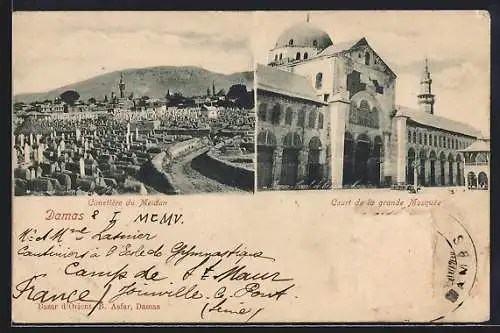 Cimetière du Meidan
Court de la grande Mosquée
Damas 8 I MCMV.
Mr & Mme Latinier
Cantiniers à l'École de Gymnastique
Camp de St Maur
France) Joinville-le-Pont
(Seine)
Bazar d'Orient, B. Asfar, Damas